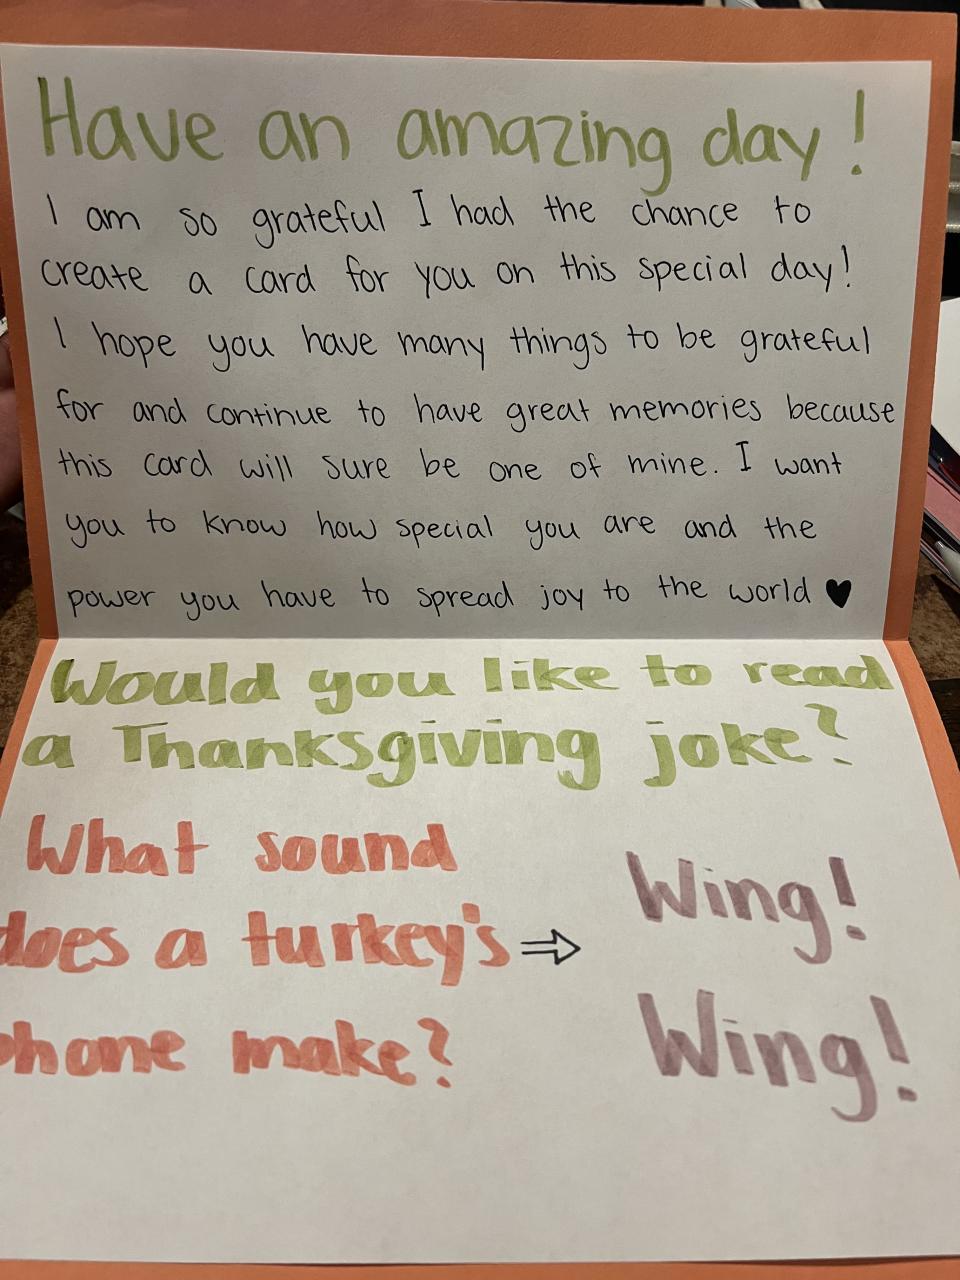 Have an amazing day!
I am so grateful I had the chance to
create a card for you on this special day!
I hope you have many things to be grateful
for and continue to have great memories because
this card will sure be one of mine. I want
you to know how special you are and the
power you have to spread joy to the world ♥
Would you like to read
a Thanksgiving joke?
What sound
does a turkey's ⇒
phone make?
Wing!
Wing!